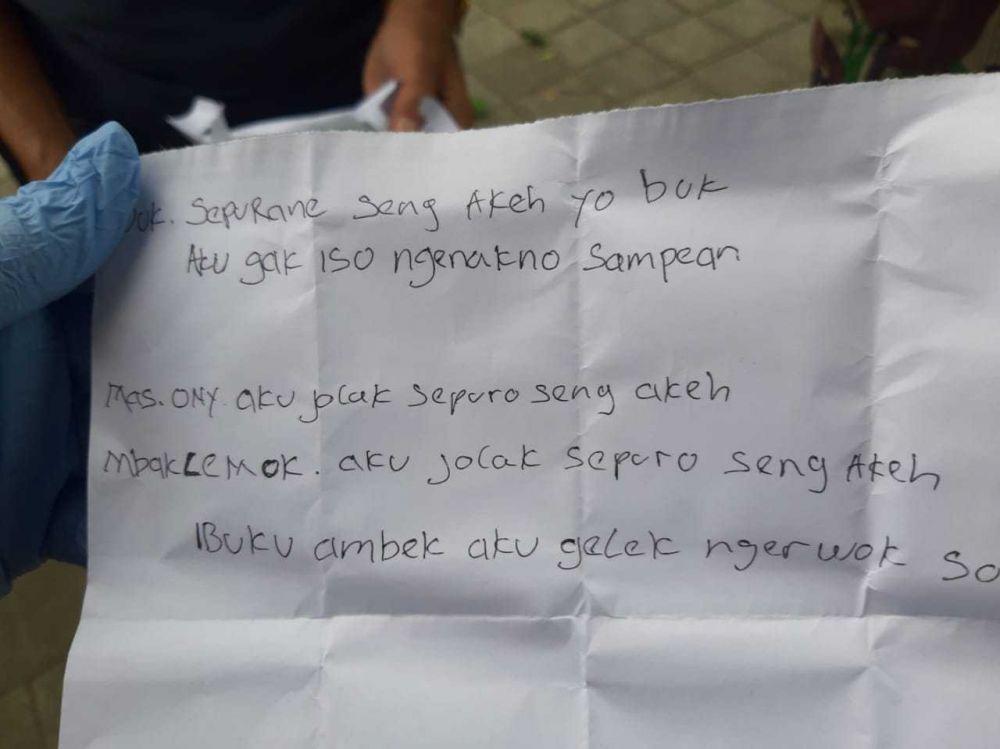 Sepurane seng Akeh yo buk
Aku gak iso ngenakno Sampean
Mas. ONY. aku jolak seporo seng akeh
Mbak LEMOK. aku jolak seporo seng Akeh
IBUKU ambek aku gelek ngerwok